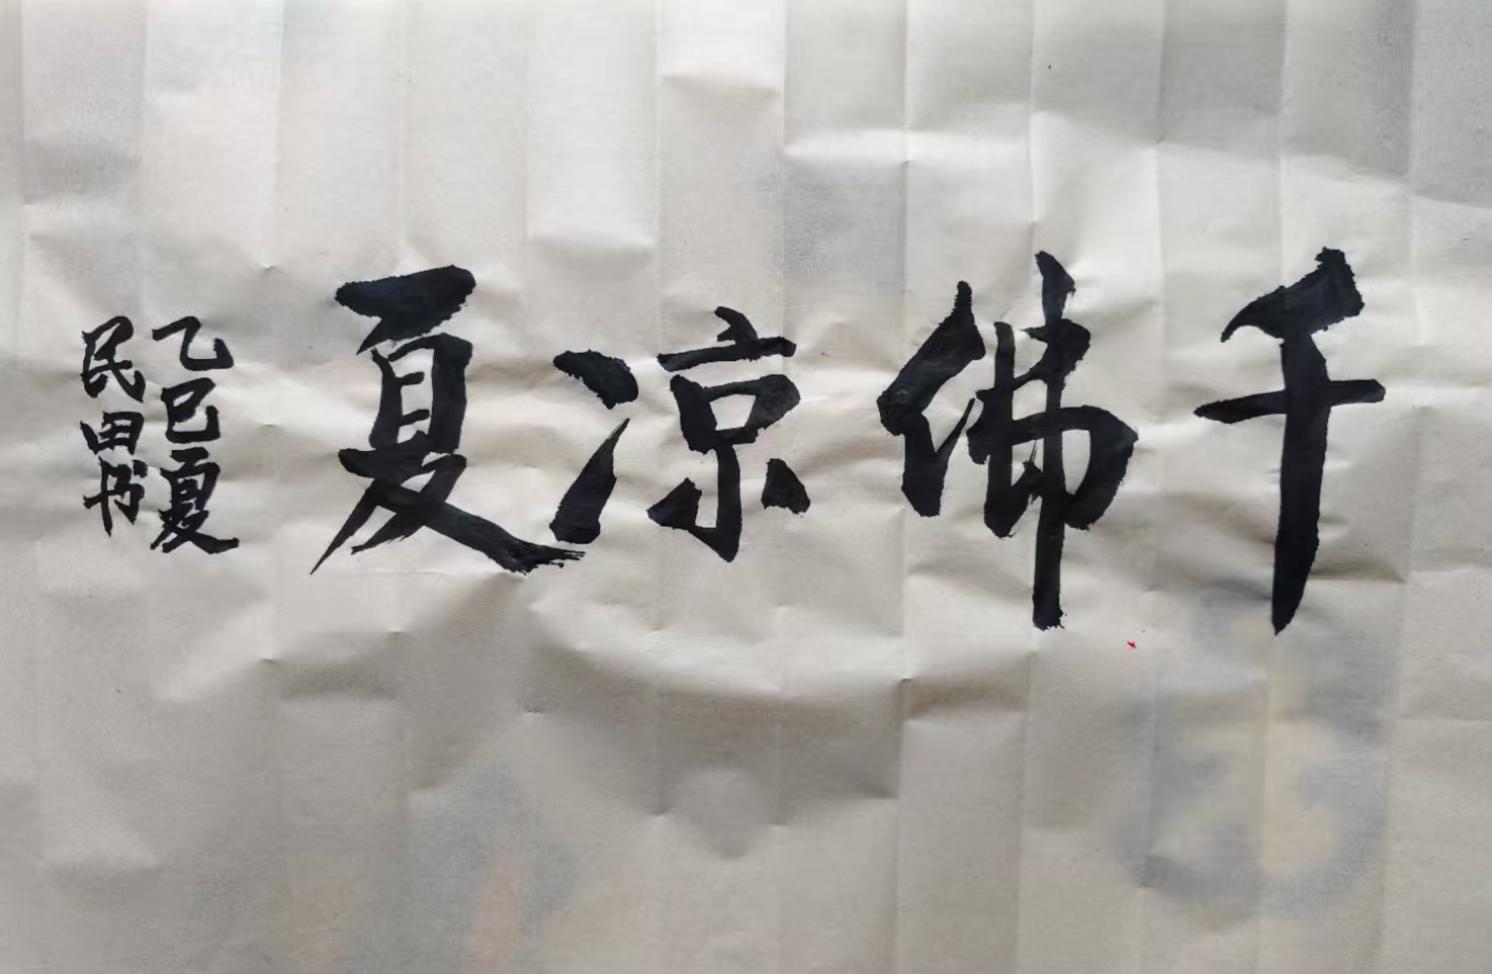 千佛凉夏
乙巳夏
民田书